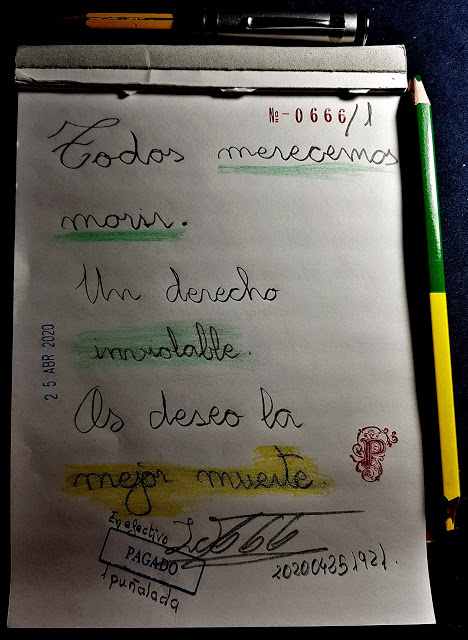 №-0666/1
Todos merecemos
morir.
Un derecho
inviolable.
25 ABR 2020
Os deseo la
P
mejor muerte.
En efectivo
PAGADO
1 puñalada
202004251921.